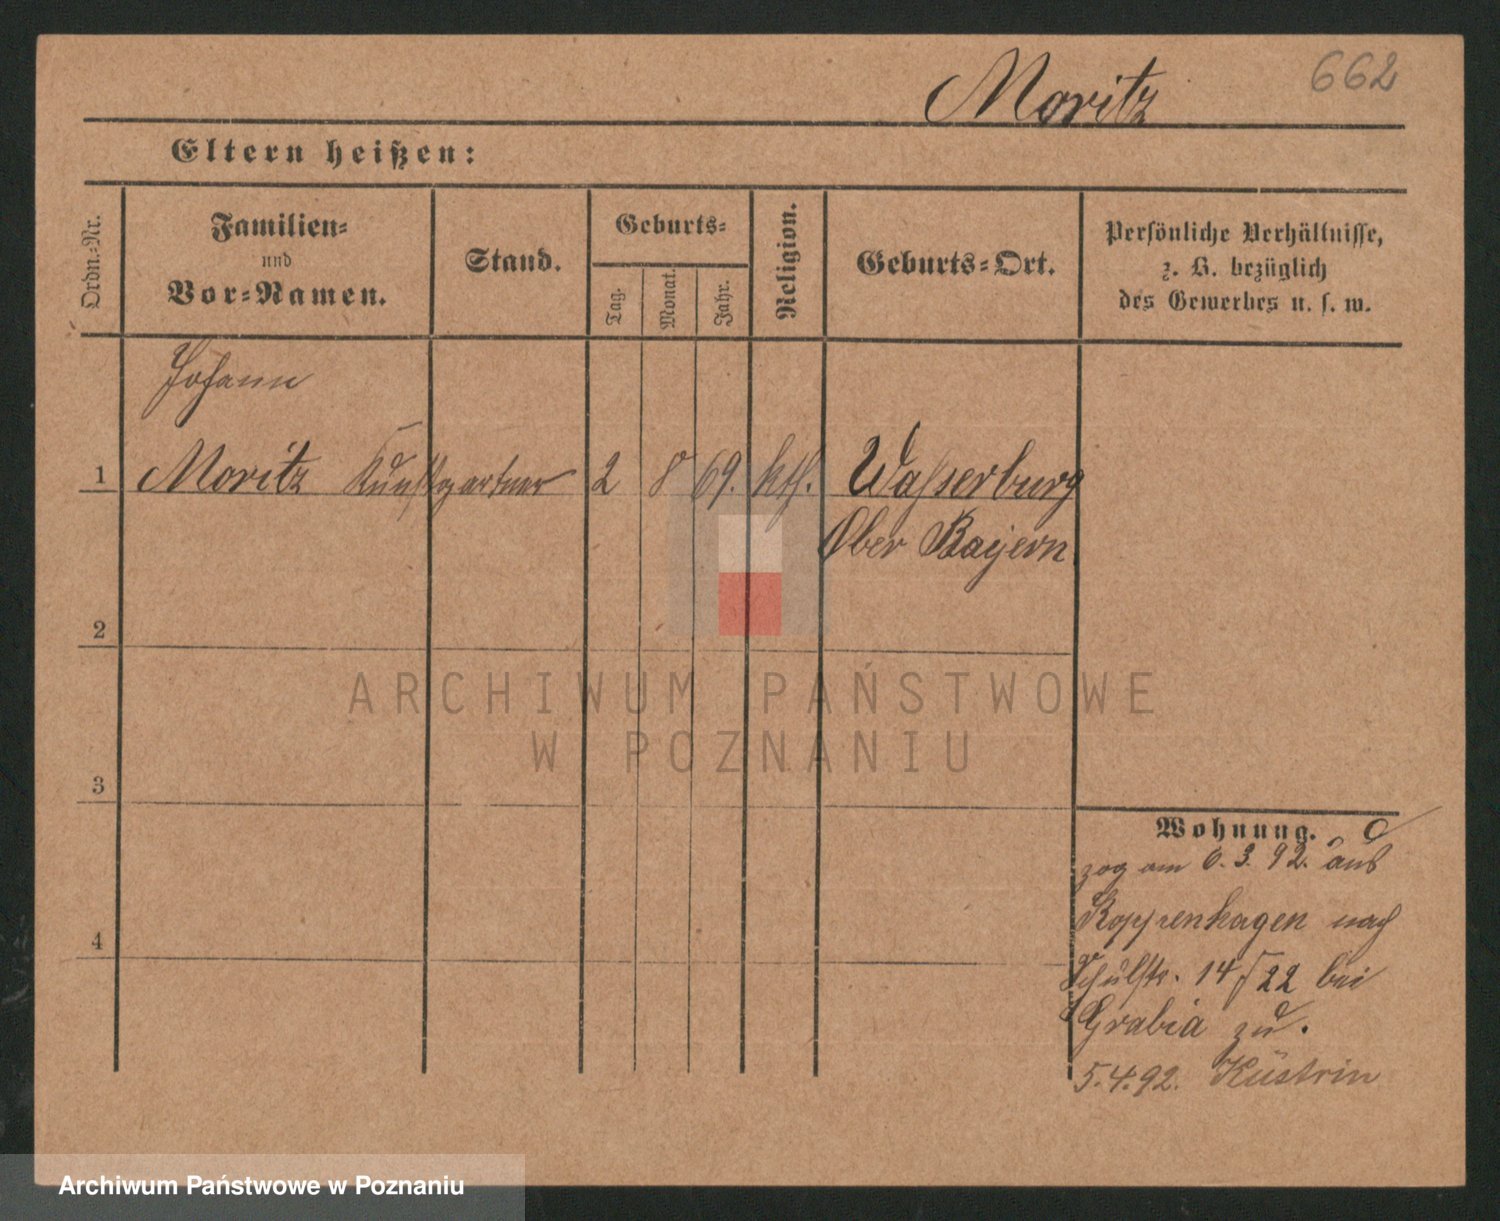 Moritz 662
Eltern heißen:
Ordn.-Nr.
Familien-
und
Vor-Namen.
Stand.
Geburts-
Tag.
Monat.
Jahr.
Religion.
Geburts-Ort.
Persönliche Verhältnisse,
z. B. bezüglich
des Gewerbes u. s. w.
Johann
1 Moritz Kunstgärtner 2 8 69. kth. Wasserburg
Ober Bayern
2
ARCHIWUM PAŃSTWOWE
W POZNANIU
3
Wohnung.
zog am 6.3.92. aus
Koppenhagen nach
Schulstr. 14/22 bei
Grabia zu.
5.4.92. Küstrin
4
Archiwum Państwowe w Poznaniu